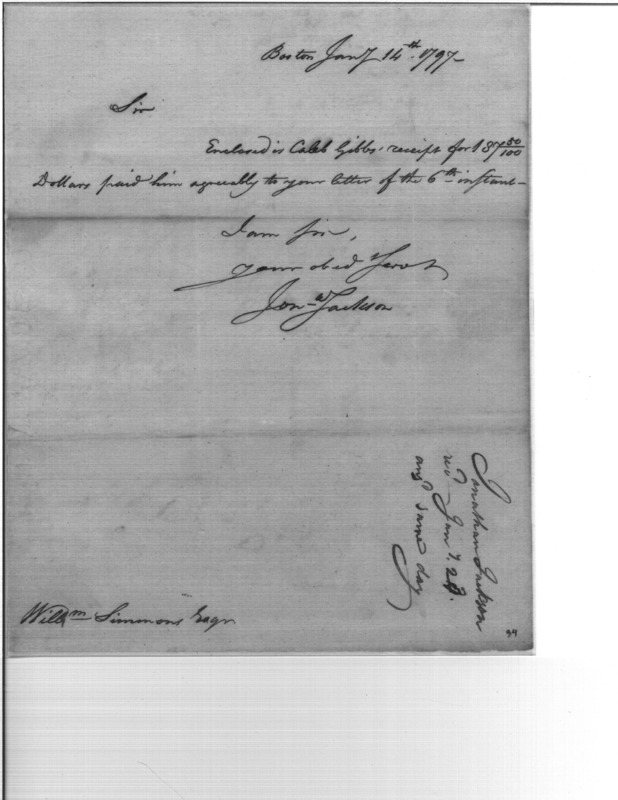 Boston Jany 14th. 1797-
Sir
Enclosed is Caleb Gibbs' receipt for 187 50/100
Dollars paid him agreeably to your letter of the 6th instant-
I am Sir,
your obedt Servt
Jona Jackson
Jonathan Jackson
recd Jany. 23.
ansd same day
Willm Simmons Esqr
94